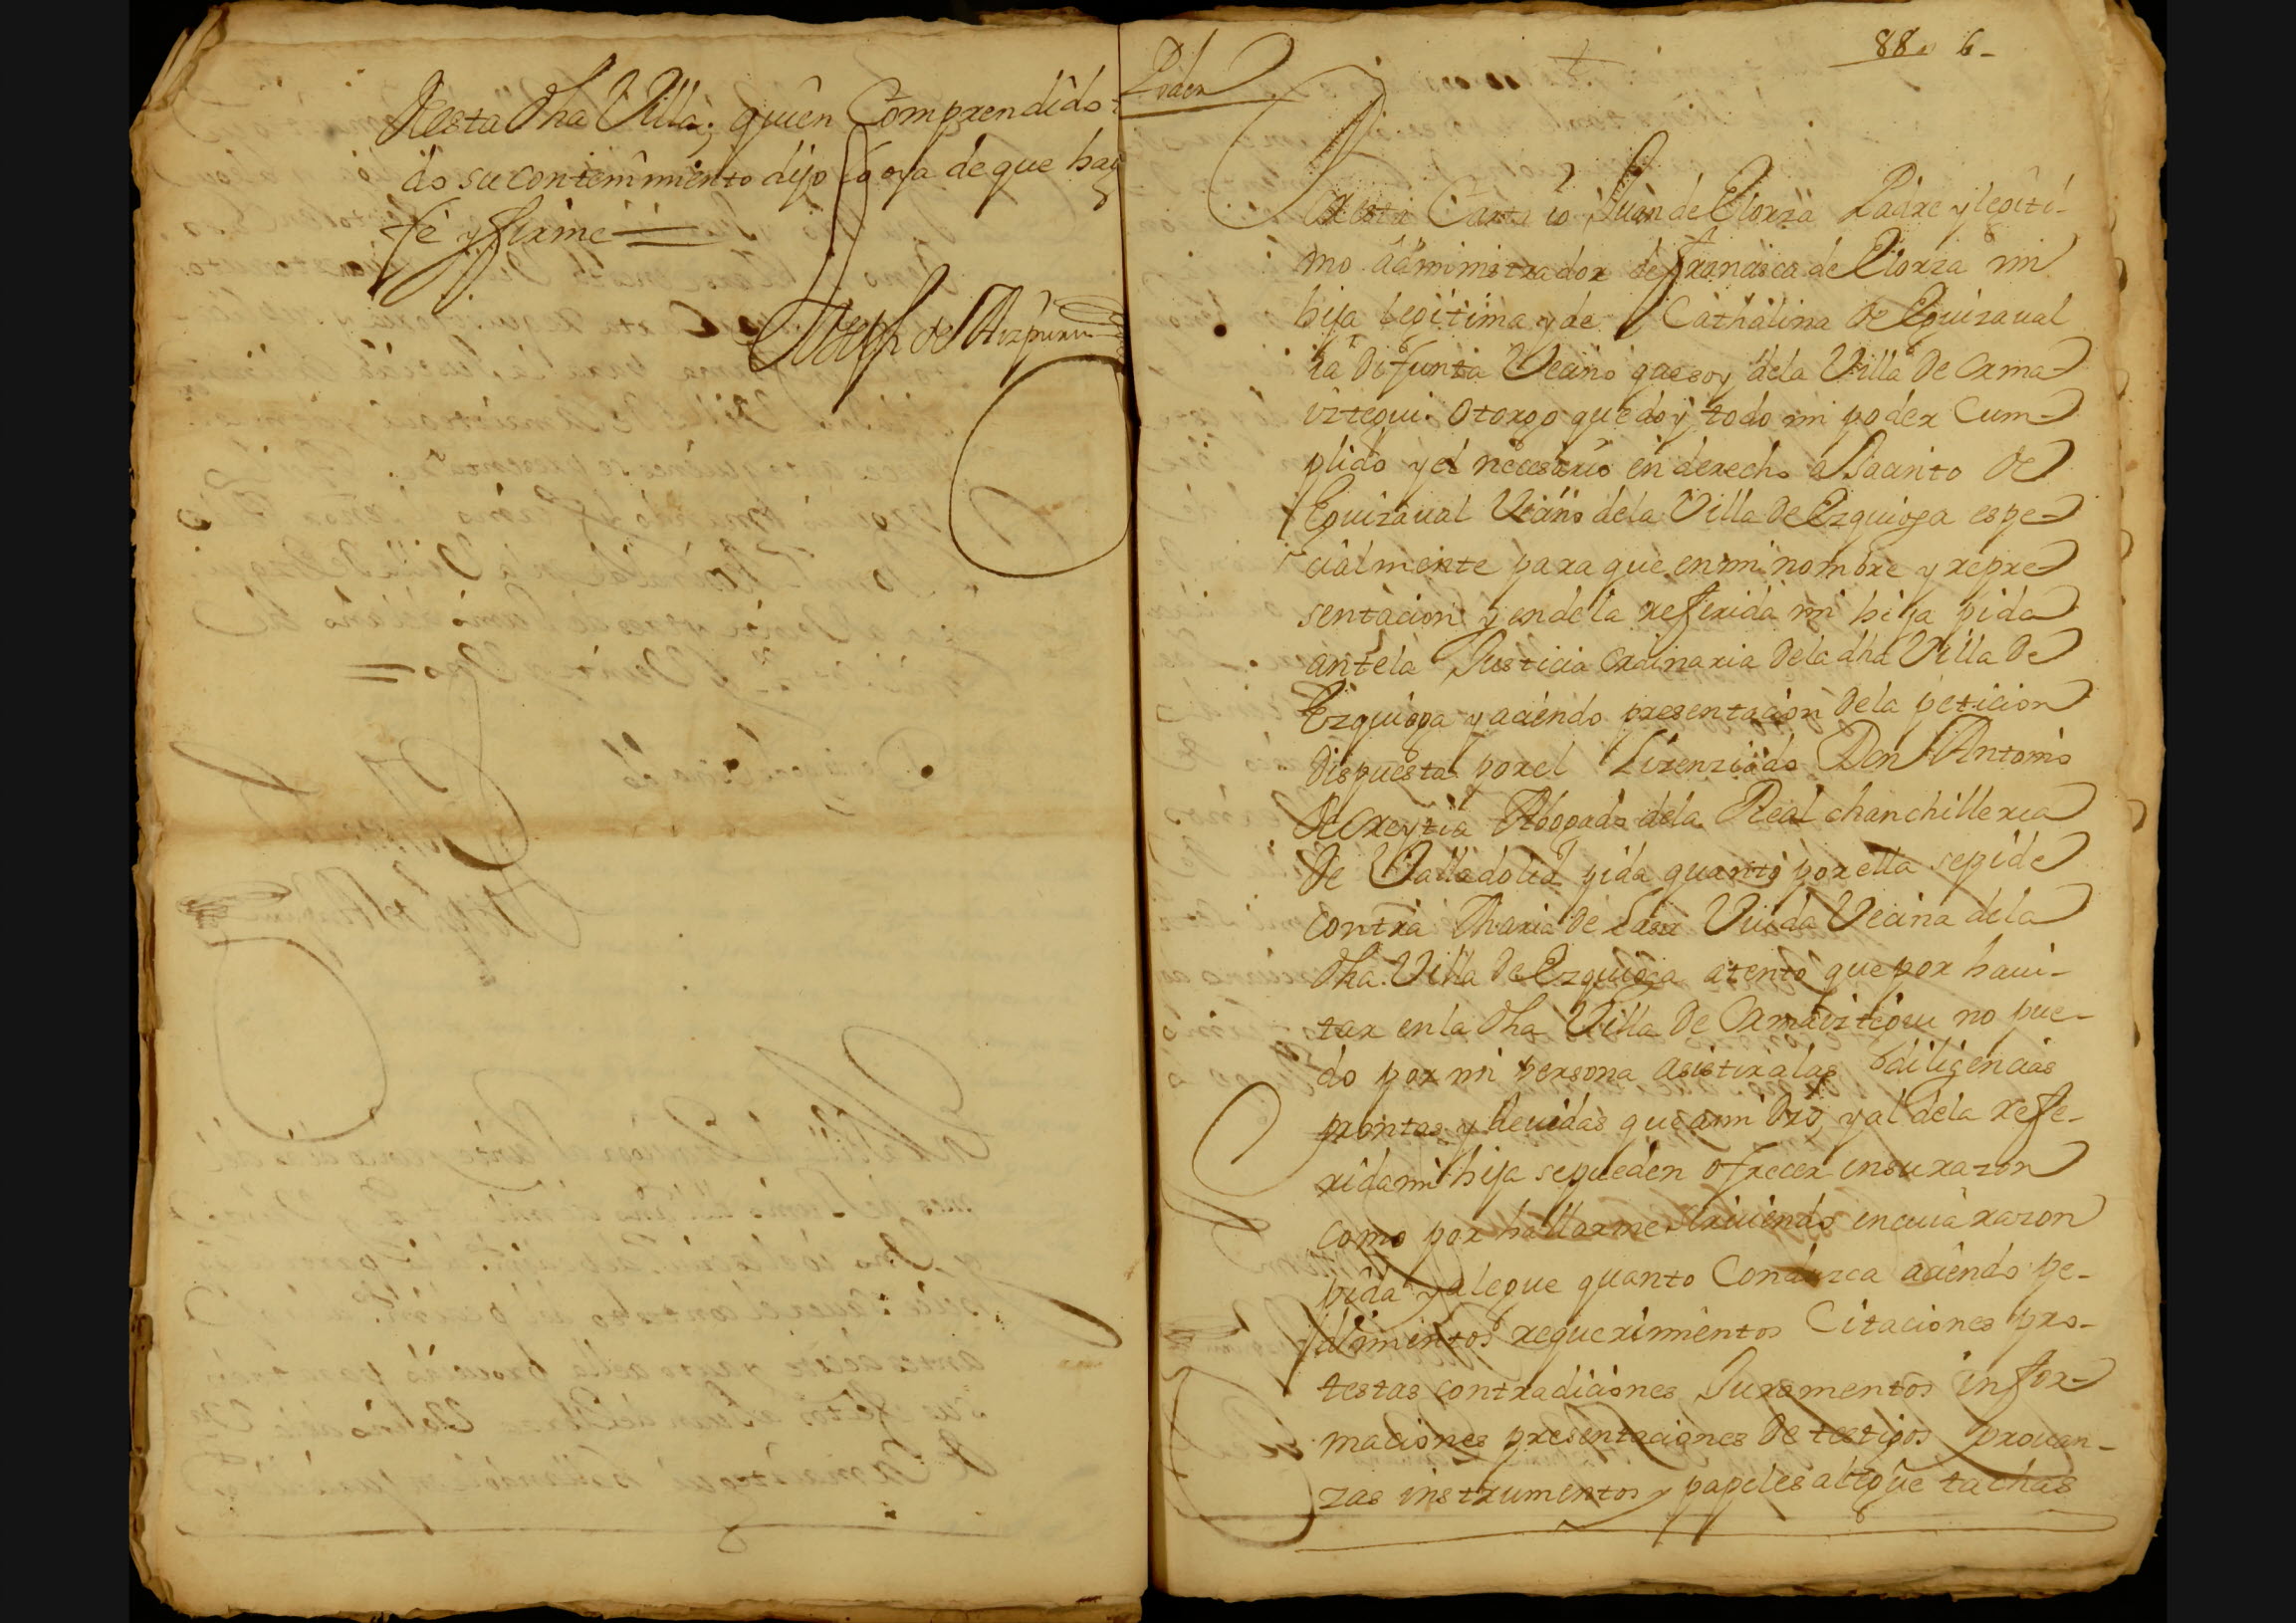 desta dha Villa; quien Comprendido
do su contenimiento dijo lo oya de que hay
fe y firme
Joseph de Aizpuru
Poder
88 6
Por esta Carta io Juan de Elorza Padre y legiti-
mo administrador de francisca de Elorza mi
hija legitima y de Cathalina de Eguizaual
la difunta Vecino que soy dela Villa de Orma
iztegui. Otorgo que doy todo mi poder Cum
plido y el necesario en derecho a Jacinto de
Eguizaual Vecino dela Villa de Ezquioga espe
cialmente para que en mi nombre y repre
sentacion y en de la referida mi hija pida
ante la Justicia Ordinaria dela dha Villa de
Ezquioga y aciendo presentacion dela peticion
dispuesta por el Lizenziado Don Antonio
de Oreytia Abogado dela Real chanchilleria
de Valladolid pida quanto por ella se pide
contra Maria de Lasa Viuda Vecina dela
dha Villa de Ezquioga atento que por haui-
tar en la dha Villa de Ormaiztegui no pue-
do por mi persona asistir a las diligencias
prontas y deuidas que a mi dro y al dela refe-
rida mi hija se pueden ofrecer en su razon
como por hallarme siruiendo en cuia razon
pida y alegue quanto Conduzca aciendo pe-
dimentos requerimientos Citaciones pro-
testas contradiciones Juramentos infor-
maciones presentaciones de testigos prouan-
zas instrumentos y papeles alegue tachas